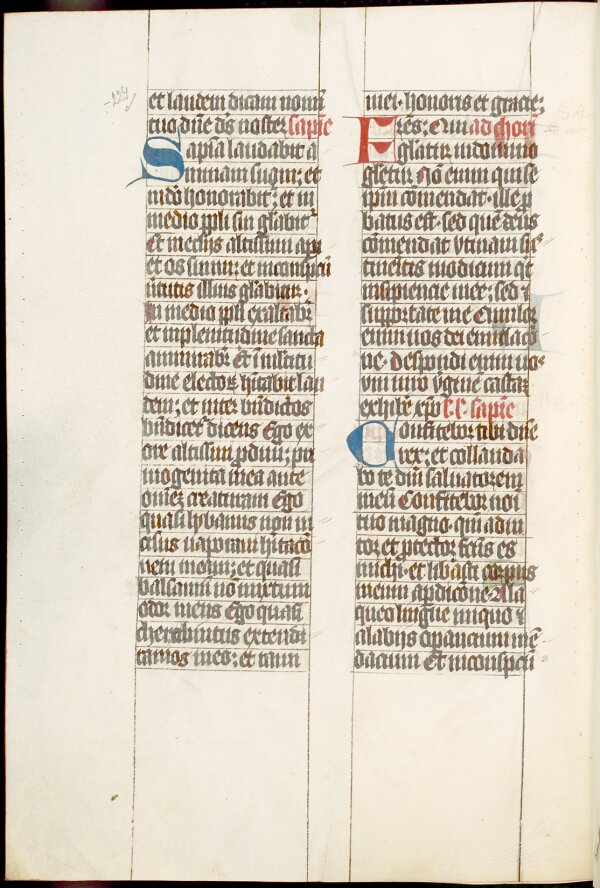 -229
et laudem dicam nomi
tuo dn̄e ds̄ noster sapīe
Sapīa laudabit a
nimam suam; et
in dō honorabit᷑; et in
medio ppl̄i sui gl̄abit᷑
Et in eccl̄ijs altissimi api
et os suum; et in conspc̄tu
uirtutis illius gl̄abitur·
In medio ppl̄i exaltabit᷑
et in plenitudine sancta
ammirabr̄ Et ī multitu
dine electoꝝ hēbit lau
dem; et inter bn̄dictos
bn̄dicet᷑ dicens Ego ex
ore altissimi prodiui; pri
mogenita ante
om̄eꝫ creaturam Ego
quasi lybanus non in
cisus uaporaui hītacō
nem meam; et quasi
balsamū nō mixtum
odor meus Ego quasi
therebintus extendi
ramos meos; et rami
mei· honoris et gracie;
Fr̄es; Qui ad chorī
gl̄atur in domino
gl̄etur Nō enim qui se
ip̄m cōmendat· ille p̄
batus est· sed quē deus
cōmendat Vtinam sus
tineretis modicum qͥd
insipiencie mee; sed ⁊
supportate me Emulor
enim uos dei emulacō
ne· Despondi enim uos
vni uiro v̄gine castā
exhibē xp̄o l̄c̄· sapīe
Confitebor tibi dn̄e
rex; et collauda
bo te dm̄ saluatorem
meū Confitebor noī
tuo magno· qm̄ adiu
tor et ꝓtector fc̄us es
michi· et libasti corpus
meum a ꝑdicōne A la
queo lingue iniquo ⁊
a labijs operancium mē
dacium Et in conspc̄tu